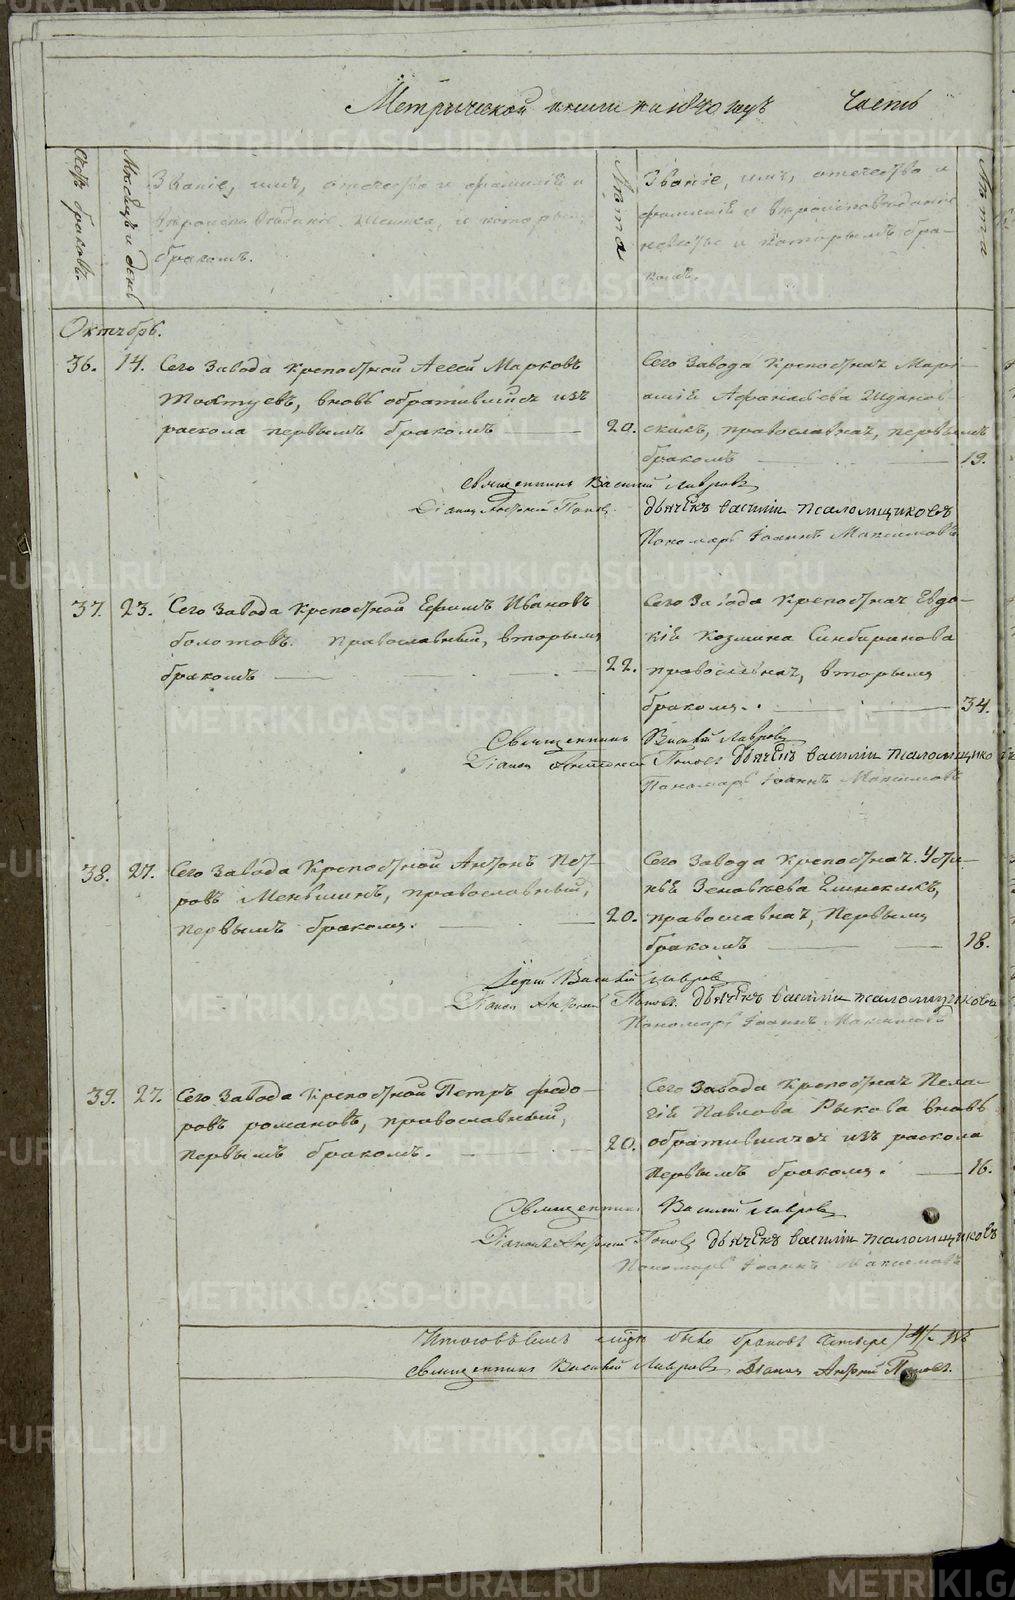 Метрической книги на 1840 годъ Часть
Счетъ браковъ.
Мѣсяцъ и день
Званіе, имя, отечество и фамилія и
вѣроисповѣданіе жениха, и которымъ
бракомъ.
Лѣта
Званіе, имя, отечество и
фамилія и вѣроисповѣданіе
невѣсты и которымъ бра-
комъ.
Лѣта
Октябрь.
36. 14. Сего Завода крепостной Алсей Марковъ
вновь обратившійся изъ
раскола первымъ бракомъ 20.
Сего Завода Крепостная Марі-
Афанасьева
православная, первымъ
бракомъ 19.
Священникъ Василій Лавровъ
Діаконъ Андрей Поповъ дьячекъ василій псаломщиковъ
Пономарь Іоаннъ Максимовъ
37. 23. Сего Завода Крепостной Ефимъ Ивановъ
болотовъ. православный, вторымъ
бракомъ 22.
Сего Завода крепостная Евдо-
кія Козмина Синбиракова
православная, вторымъ
бракомъ. 34.
Священникъ Василій Лавровъ
Діаконъ Поповъ дьячекъ василій псаломщико
Пономарь Іоаннъ Максимовъ
38. 27. Сего Завода Крепостной Антонъ Пет-
ровъ Меньшинъ, православный,
первымъ бракомъ. 20.
Сего Завода крепостная Усти-
нья Зеновьева
православная, Первымъ
бракомъ 18.
Іерей Василій Лавровъ
Діаконъ Андрей Поповъ дьячекъ василій псаломщиковъ
Пономарь Іоаннъ Максимовъ
39. 27. Сего Завода Крепостной Петръ федо-
ровъ романовъ, православный,
первымъ бракомъ. 20.
Сего Завода Крепостная Пела-
гія Павлова Рыкова вновь
обратившаяся изъ раскола
первымъ бракомъ. 16.
Священникъ Василій Лавровъ
Діаконъ Андрей Поповъ дьячекъ василій псаломщиковъ
Пономарь Іоаннъ Максимовъ
было браковъ четыре
священникъ Василій Лавровъ Діаконъ Андрей Поповъ.
METRIKI.GASO-URAL.RU